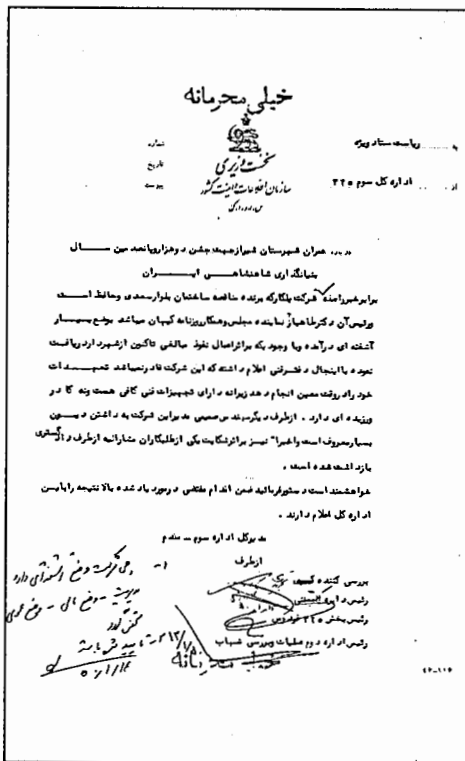 خیلی محرمانه
به ریاست ستاد ویژه
از اداره کل سوم ۳۲۵
شماره
تاریخ
پیوست
نخست وزیری
سازمان اطلاعات و امنیت کشور
س.ا.و.ا.ک
درباره عمران شهرستان شیراز جهت جشن دوهزار و پانصدمین سال
بنیانگذاری شاهنشاهی ایران
برابر خبر رسیده شرکت پلکار که برنده مناقصه ساختمان بلوار سعدی و حافظ است
و رئیس آن دکتر طاهباز نماینده مجلس و همکار روزنامه کیهان میباشد بوضع بسیار
آشفته ای درآمده و با وجودیکه بر اثر اعمال نفوذ مبالغی تاکنون از شهرداری دریافت
نموده با اینحال دفتر فنی اعلام داشته که این شرکت قادر نمیباشد تعهدات
خود را در وقت معین انجام دهد زیرا نه دارای تجهیزات فنی کافی هست و نه کادر
ورزیده ای دارد . از طرف دیگر مدیر این شرکت به داشتن دیون
بسیار معروف است و اخیرا" نیز بر اثر شکایت یکی از طلبکاران مشارالیه از طرف دادگستری
بازداشت شده است .
خواهشمند است دستور فرمائید ضمن اقدام مقتضی در مورد یاد شده بالا نتیجه را باین
اداره کل اعلام دارند .
مدیرکل اداره سوم
از طرف
بررسی کننده
رئیس دایره
رئیس بخش ۳۲۵
رئیس اداره دوم عملیات و بررسی
خیلی محرمانه